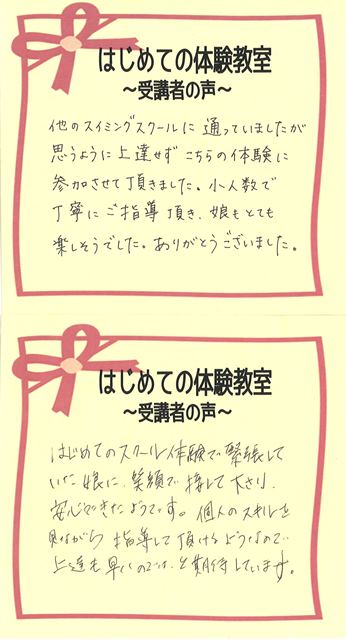 はじめての体験教室
～受講者の声～
他のスイミングスクールに通っていましたが
思うように上達せず こちらの体験に
参加させて頂きました。小人数で
丁寧にご指導頂き、娘もとても
楽しそうでした。ありがとうございました。
はじめての体験教室
～受講者の声～
はじめてのスクール体験で緊張して
いた娘に、笑顔で接して下さり、
安心できたようです。個人のスキルを
見ながら 指導して頂けるようなので
上達も早いのでは、と期待しています。